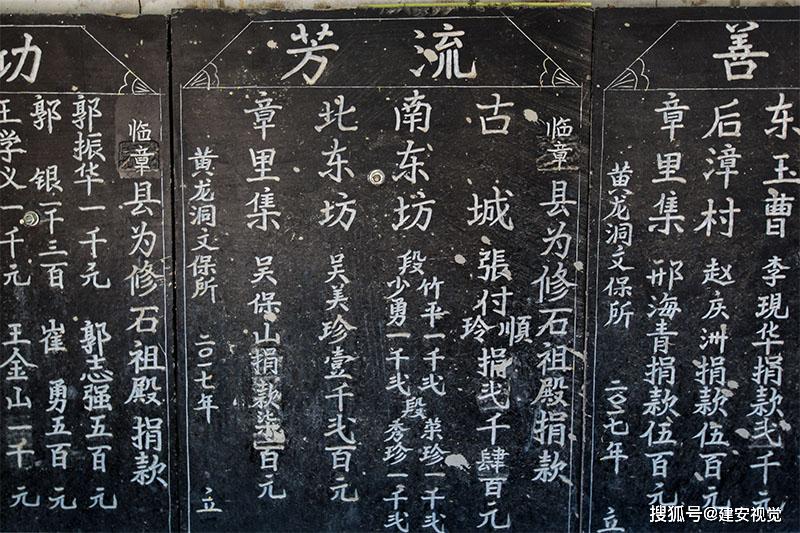 善
东玉曹 李現华捐款弍千元
后漳村 赵庆洲捐款伍百元
章里集 邢海青捐款伍百元
黄龙洞文保所 二〇一七年 立
流芳
临章县为修石祖殿捐款
古城 張付順玲捐弍千肆百元
南东坊 段竹平一千弍 段荣珍一千弍
少勇一千弍 秀珍一千弍
北东坊 吴美珍壹千弍百元
章里集 吴保山捐款柒百元
黄龙洞文保所 二〇一七年 立
功
临章县为修石祖殿捐款
郭振华一千元 郭志强五百元
郭银一千三百 崔勇五百元
王学义一千元 王金山一千元
搜狐号@建安视觉